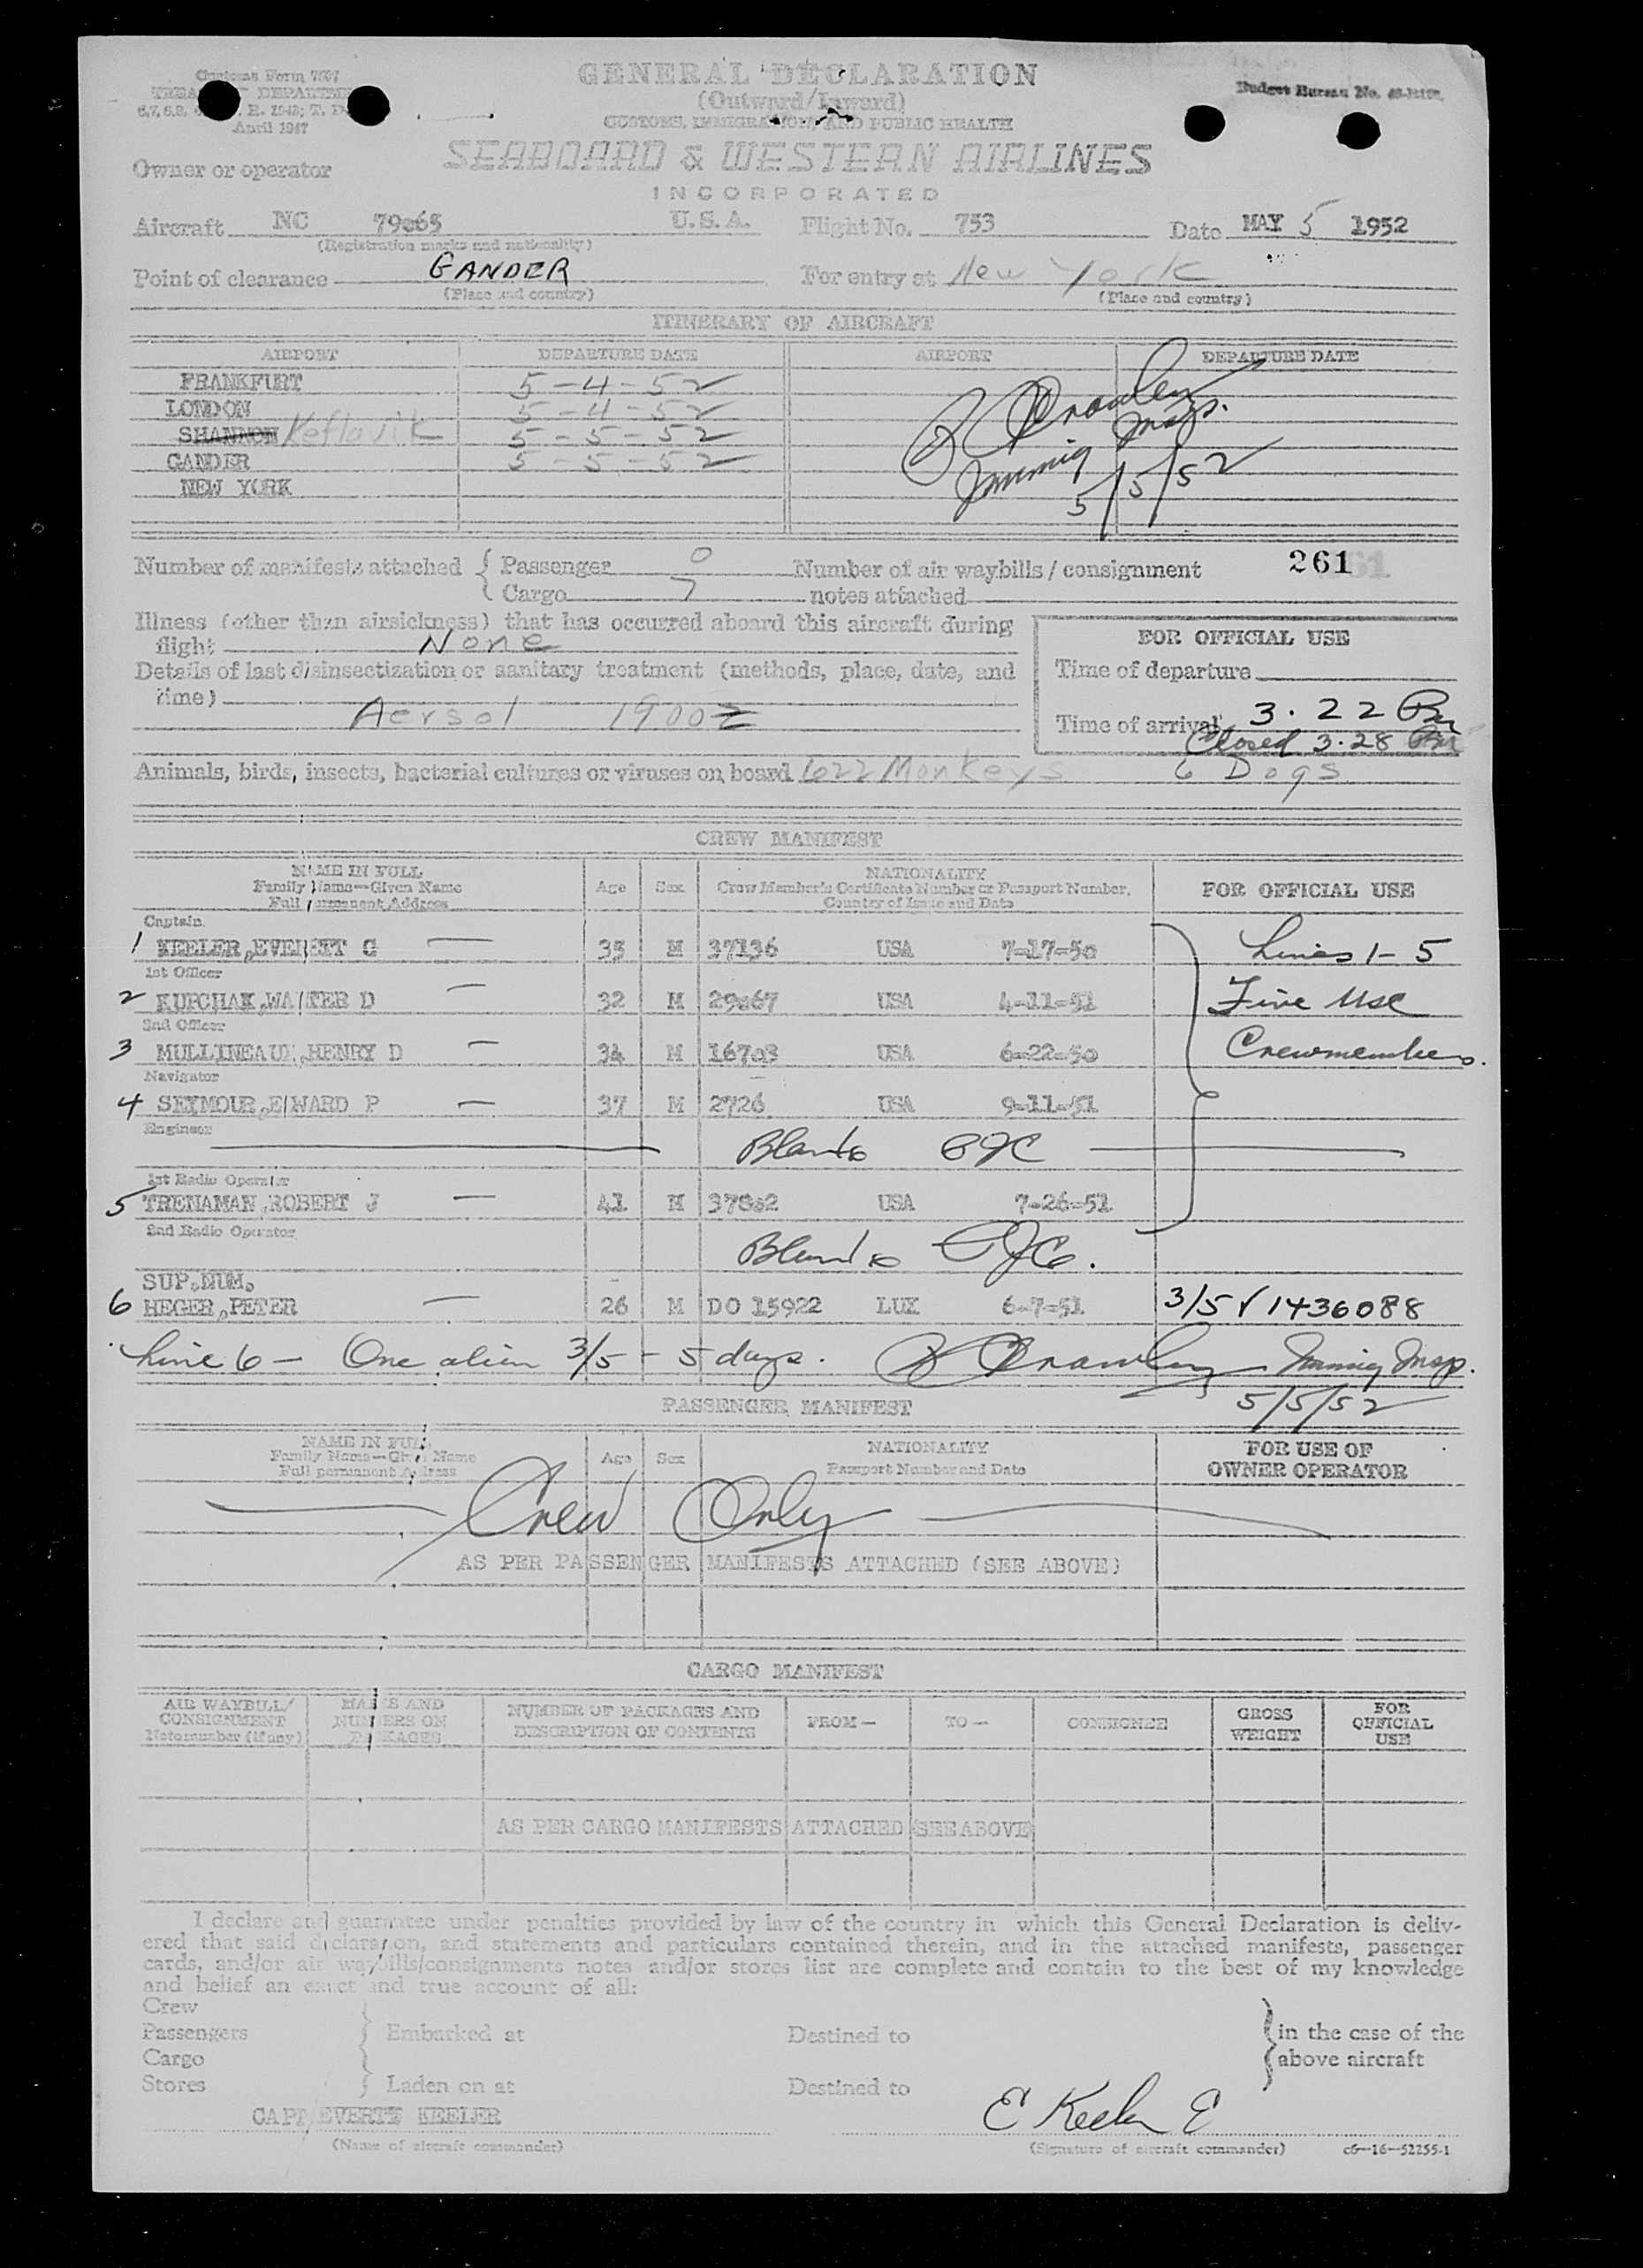 Customs Form 7507
TREASURY DEPARTMENT
April 1947
GENERAL DECLARATION
(Outward/Inward)
CUSTOMS, IMMIGRATION, AND PUBLIC HEALTH
Budget Bureau No.
Owner or operator SEABOARD & WESTERN AIRLINES
INCORPORATED
Aircraft NC 79065 U.S.A. Flight No. 753 Date MAY 5 1952
(Registration marks and nationality)
Point of clearance GANDER For entry at New York
(Place and country) (Place and country)
ITINERARY OF AIRCRAFT
AIRPORT DEPARTURE DATE AIRPORT DEPARTURE DATE
FRANKFURT 5-4-52
LONDON 5-4-52
SHANNON Keflavik 5-5-52
GANDER 5-5-52
NEW YORK
Immig Insp.
5/5/52
Number of manifests attached { Passenger 0 Number of air waybills / consignment 261
Cargo 7 notes attached
Illness (other than airsickness) that has occurred aboard this aircraft during
flight None
FOR OFFICIAL USE
Details of last disinsectization or sanitary treatment (methods, place, date, and
time) Aersol 1900Z
Time of departure
Time of arrival 3.22 Pm
Closed 3.28 Pm
Animals, birds, insects, bacterial cultures or viruses on board 622 Monkeys 6 Dogs
CREW MANIFEST
NAME IN FULL
Family Name—Given Name
Full permanent Address
Age Sex
NATIONALITY
Crew Member's Certificate Number or Passport Number,
Country of Issue and Date
FOR OFFICIAL USE
Captain
1 KEELER, EVERETT G — 35 M 37136 USA 7-17-50 Lines 1-5
1st Officer
2 KUPCHAK, WALTER D — 32 M 29867 USA 4-11-51 Five USC
2nd Officer
3 MULLINEAUX, HENRY D — 34 M 16703 USA 6-22-50 Crewmembers.
Navigator
4 SEYMOUR, EDWARD P — 37 M 2726 USA 9-11-51
Engineer
Blank
1st Radio Operator
5 TRENAMAN, ROBERT J — 41 M 37882 USA 7-26-51
2nd Radio Operator
Blank
SUP.NUM.
6 HEGER, PETER — 26 M DO 15922 LUX 6-7-51 3/5 V 1436088
Line 6 - One alien 3/5 - 5 days. Immig Insp.
5/5/52
PASSENGER MANIFEST
NAME IN FULL
Family Name—Given Name
Full permanent Address
Age Sex
NATIONALITY
Passport Number and Date
FOR USE OF
OWNER OPERATOR
Crew Only
AS PER PASSENGER MANIFESTS ATTACHED (SEE ABOVE)
CARGO MANIFEST
AIR WAYBILL/
CONSIGNMENT
Note number (if any)
MARKS AND
NUMBERS ON
PACKAGES
NUMBER OF PACKAGES AND
DESCRIPTION OF CONTENTS
FROM— TO— CONSIGNEE
GROSS
WEIGHT
FOR
OFFICIAL
USE
AS PER CARGO MANIFESTS ATTACHED (SEE ABOVE)
I declare and guarantee under penalties provided by law of the country in which this General Declaration is deliv-
ered that said declaration, and statements and particulars contained therein, and in the attached manifests, passenger
cards, and/or air waybills/consignments notes and/or stores list are complete and contain to the best of my knowledge
and belief an exact and true account of all:
Crew
Passengers Embarked at Destined to in the case of the
Cargo above aircraft
Stores Laden on at Destined to
CAPT EVERTT KEELER E Keeler
(Name of aircraft commander) (Signature of aircraft commander) c6—16—52255-1